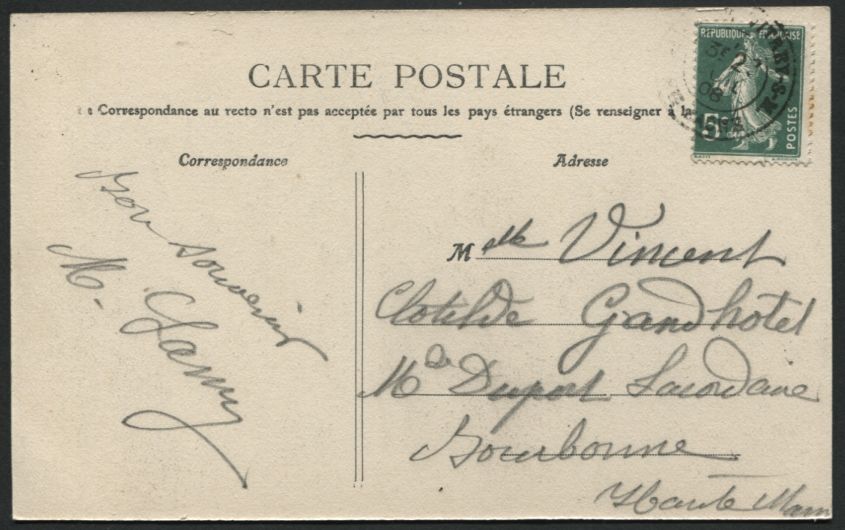 CARTE POSTALE
Correspondance au recto n'est pas acceptée par tous les pays étrangers (Se renseigner à la
Correspondance
Adresse
REPUBLIQUE FRANÇAISE
5
POSTES
Bon souvenir
M. Lamy
Melle Vincent
Clotilde Gandhotel
Mde Duport Lacordaire
Bourbonne
Haute Marn